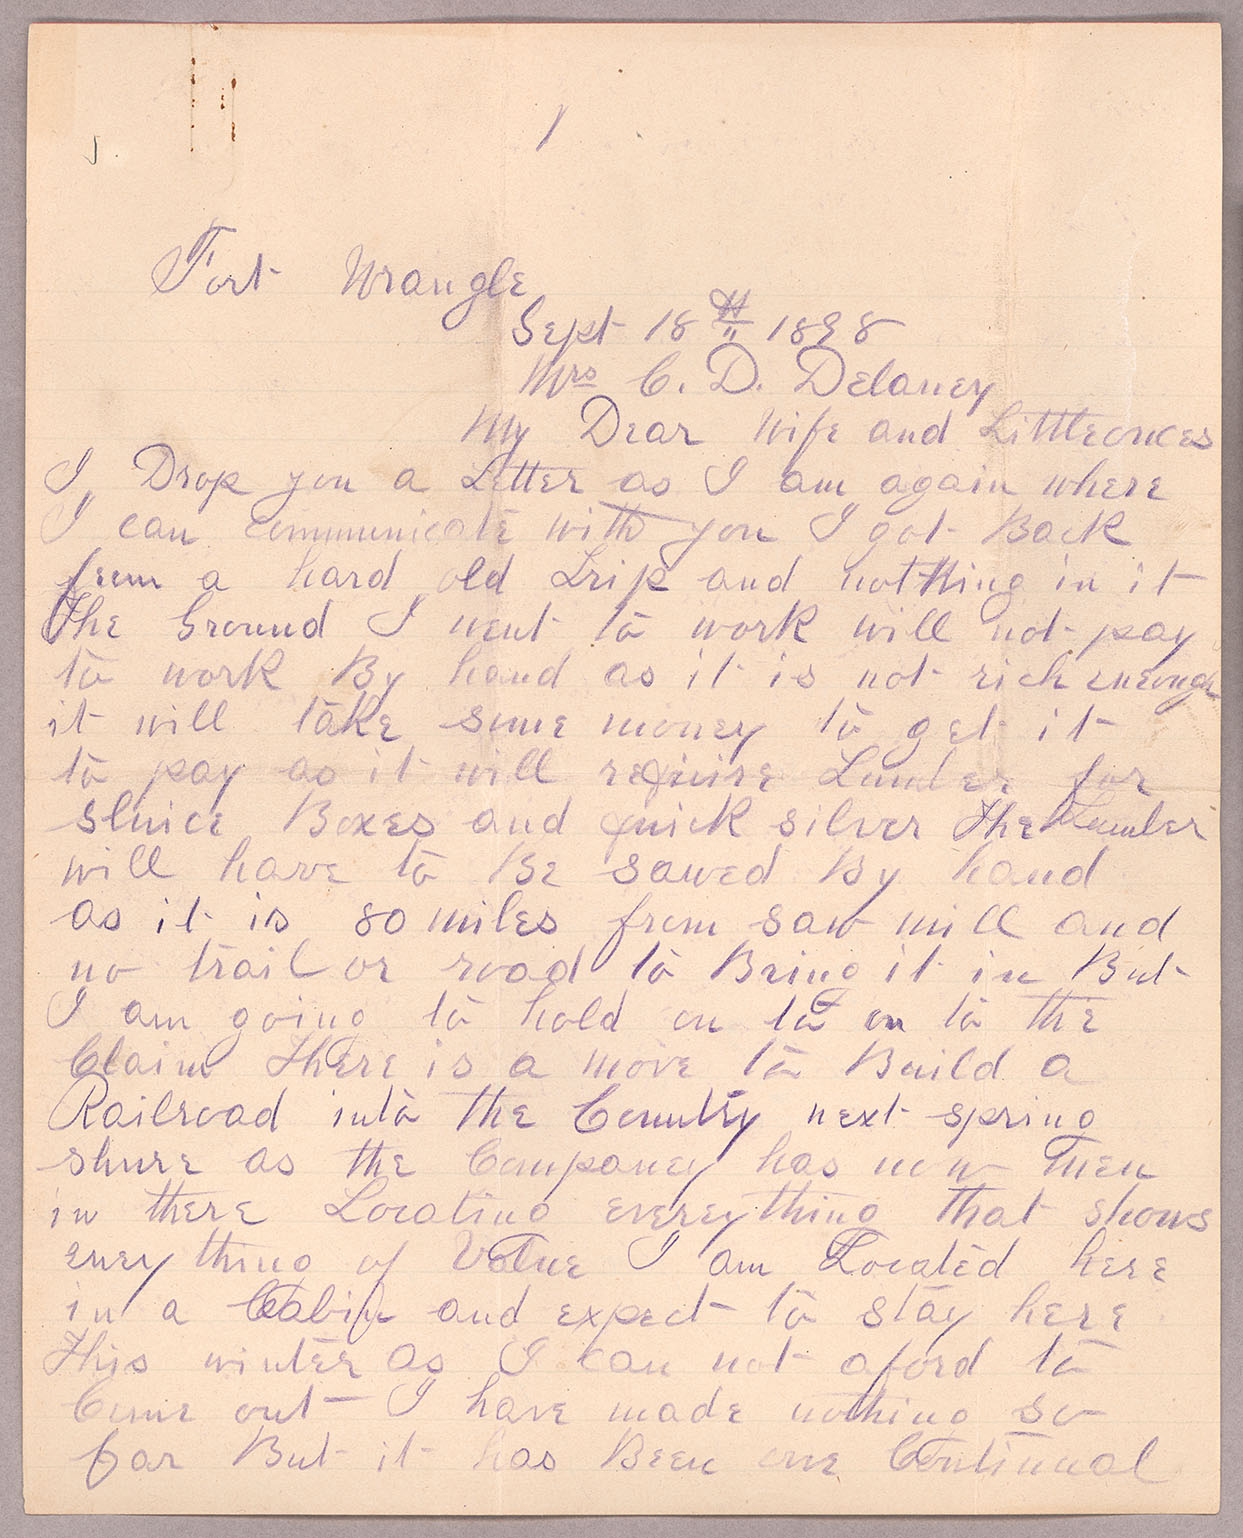 1
Fort Wrangle
Sept 18th 1898
Mrs C. D. Delaney
My Dear Wife and Littleones
I Drop you a Letter as I am again where
I can communicate with you I got Back
from a hard old Trip and notthing in it
The Ground I went to work will not pay
to work By hand as it is not rich enough
it will take some money to get it
to pay as it will require Lumber for
sluice Boxes and quick silver The Lumber
will have to Be sawed By hand
as it is 80 miles from saw mill and
no trail or road to Bring it in But
I am going to hold on to on to the
Claim There is a move to Build a
Railroad into the Country next spring
shure as the Companey has now men
in there Locating evereything that shows
eney thing of Value I am Located here
in a Cabin and expect to stay here
This winter as I can not aford to
Come out I have made nothing so
far But it has Been one Continual